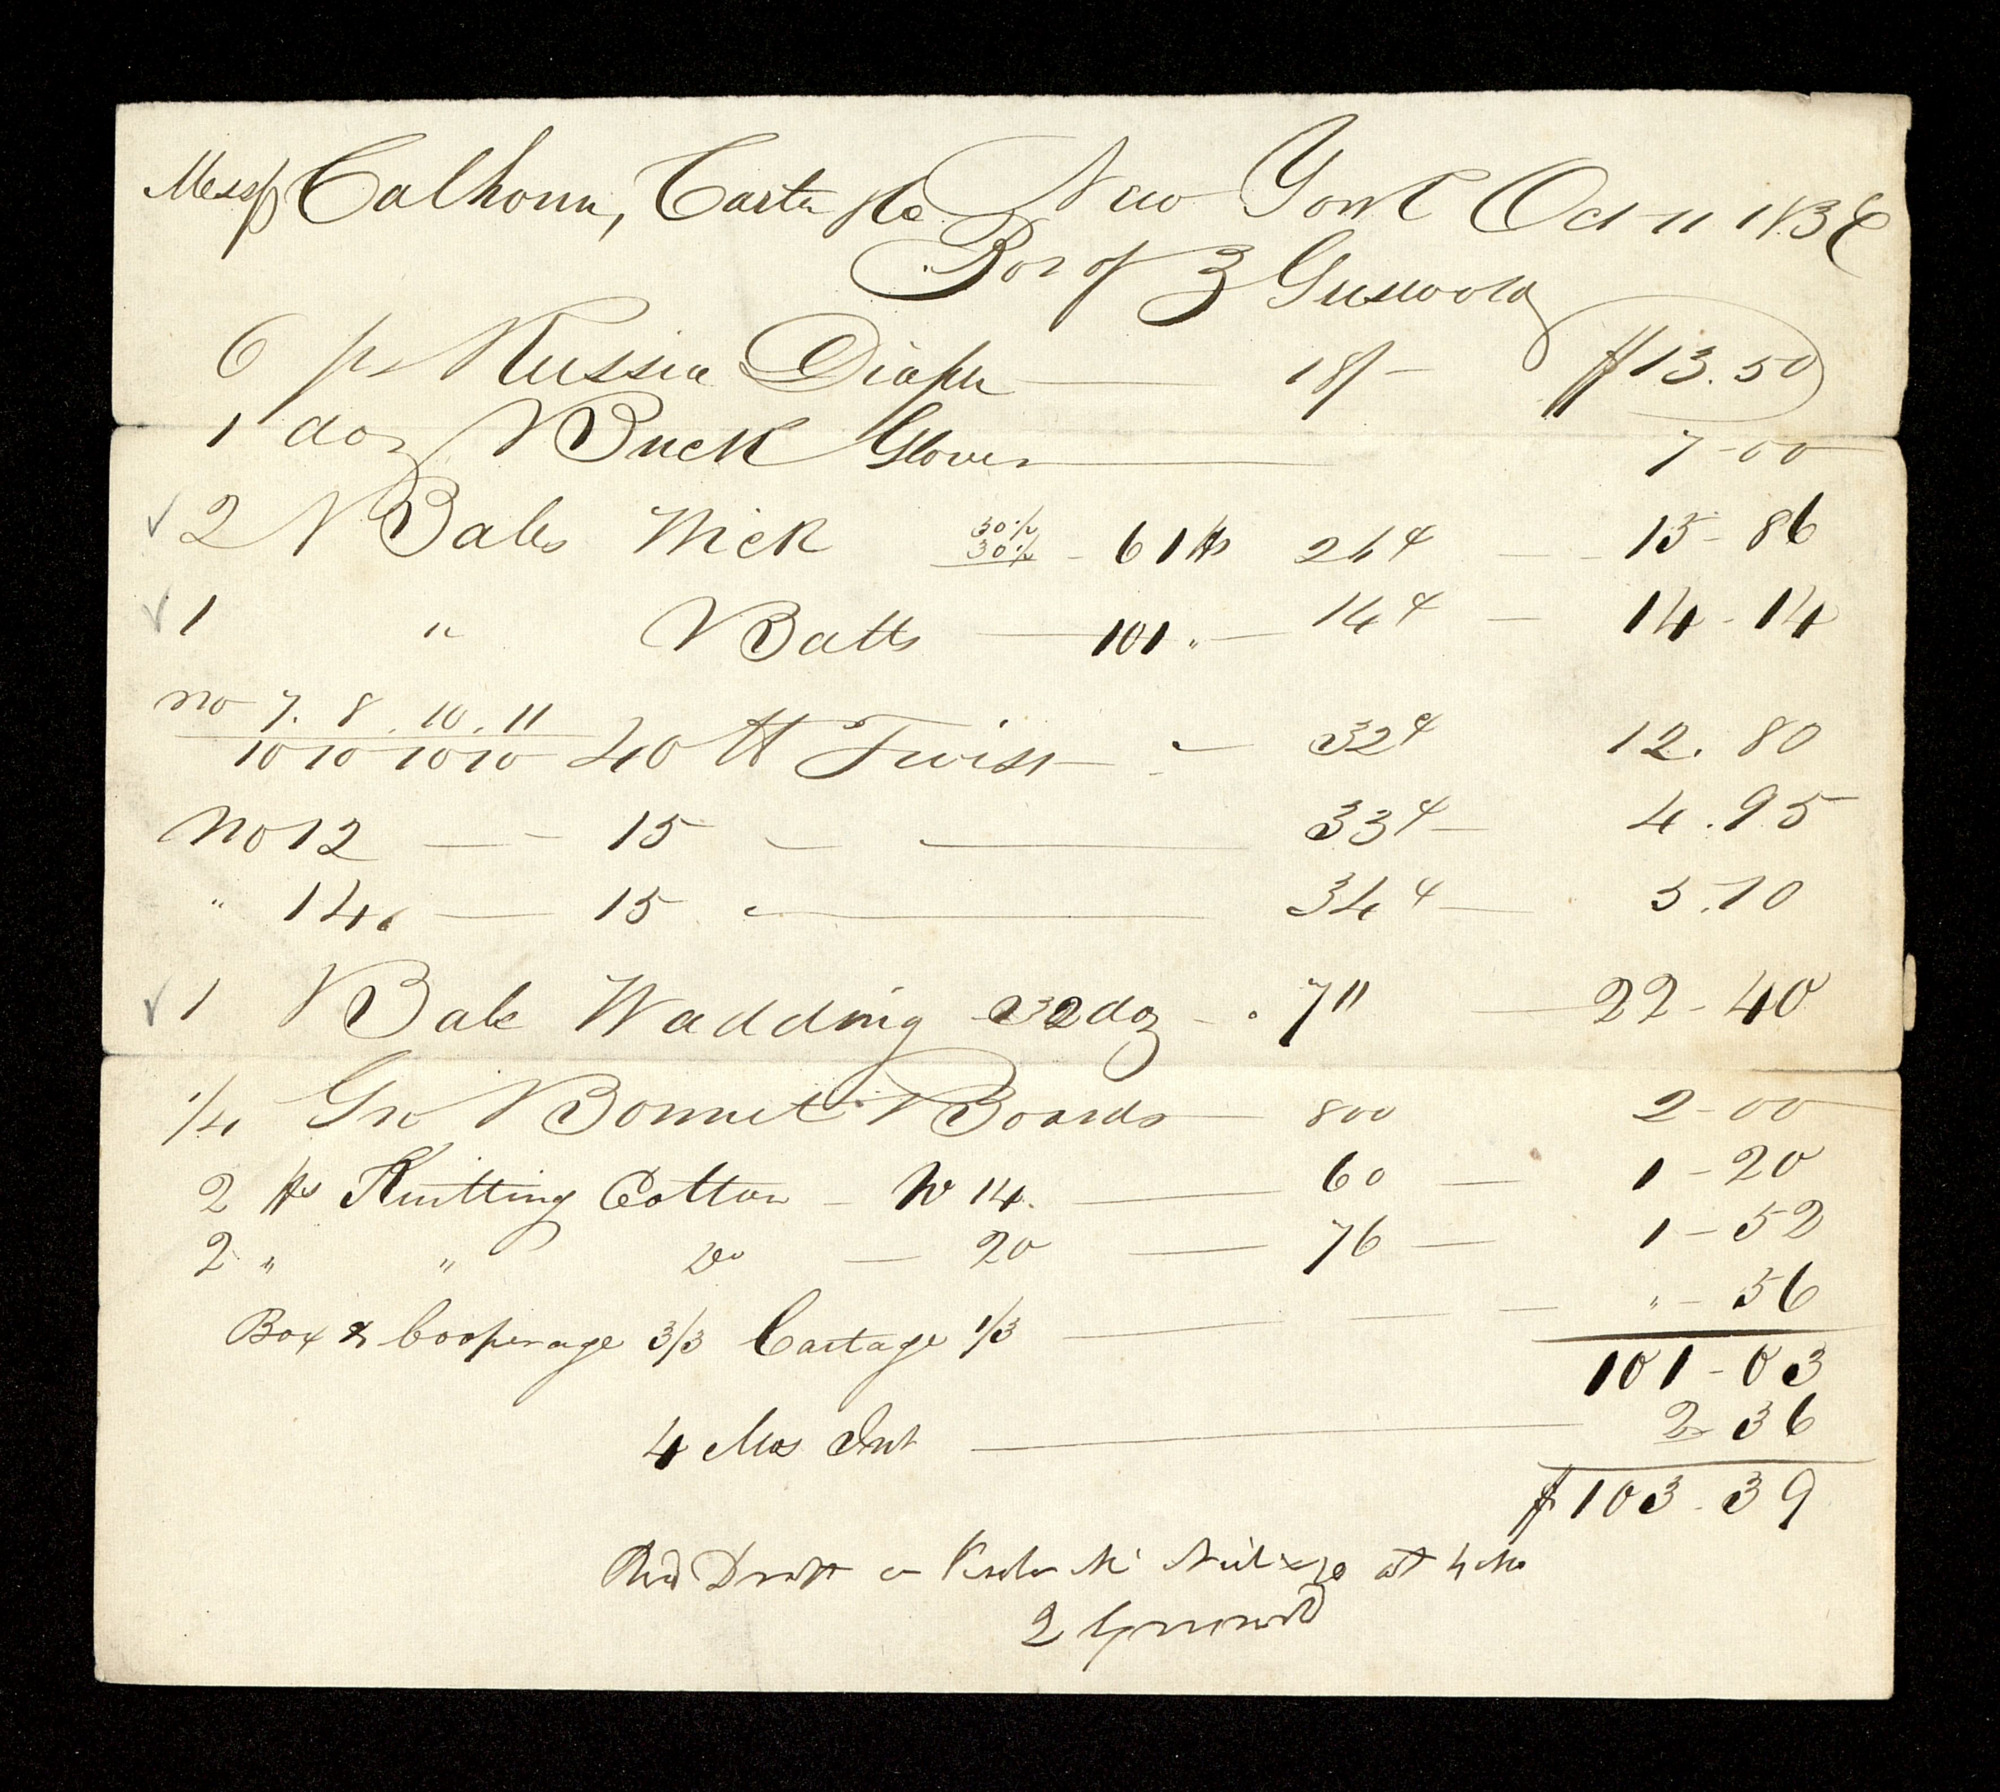 Messrs Calhoun, Carter & Co New York Oct 11 1836
Bot of Z Griswold
6 ps Russia Diaper 18/- $13.50
1 doz Buck Gloves 7-00
2 Bales Wick 30½ 30½ - 61 lbs 26¢ 15-86
1 " Batts 101 " 14¢ 14-14
No 7. 8. 10. 11
10 10 10 10 40 lb Twist 32¢ 12.80
No 12 15 33¢ 4.95
" 14 15 34¢ 5.10
1 Bale Wadding 32 doz 7" 22-40
1/4 Gro Bonnet Boards 800 2-00
2 lbs Knitting Cotton - No 14. 60 1-20
2 " " Do 20 76 1-52
Box & Cooperage 3/3 Cartage 1/3 " - 56
101-03
4 Mos Int 2-36
$103-39
Recd Draft on at 4 Mo
Z Griswold